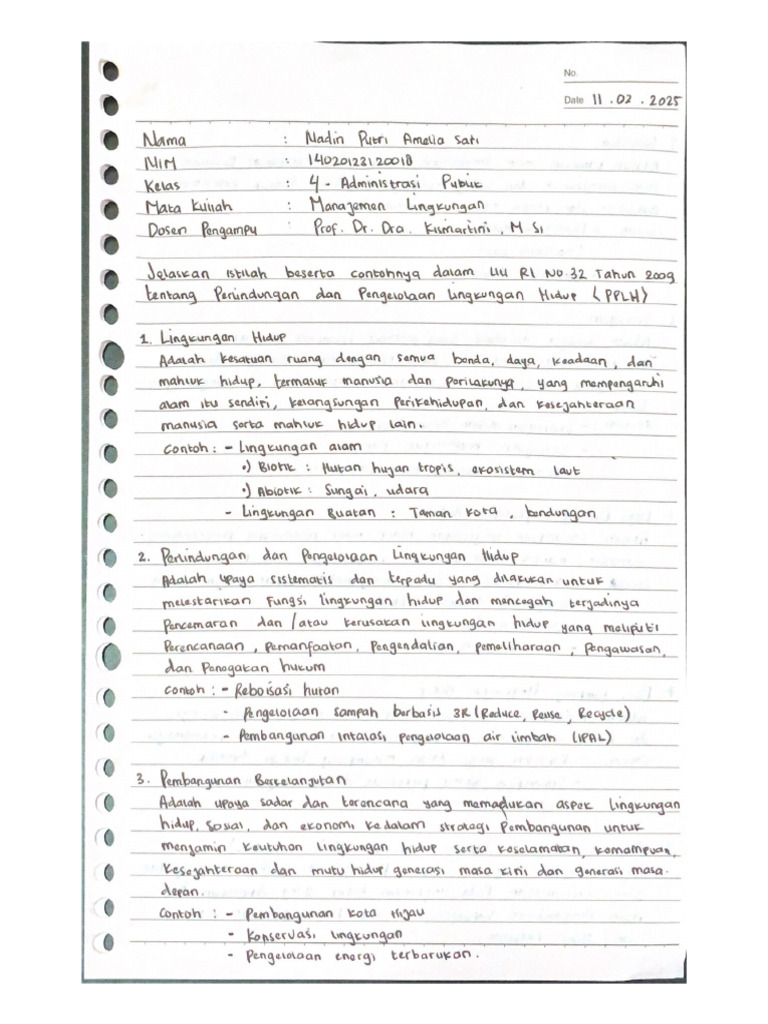 No.
Date 11 . 02 . 2025
Nama : Nadin Putri Amelia Sari
NIM : 14020123120018
Kelas : 4 - Administrasi Publik
Mata Kuliah : Manajemen Lingkungan
Dosen Pengampu : Prof. Dr. Dra. Kismartini, M Si
Jelaskan istilah beserta contohnya dalam UU RI No.32 Tahun 2009
tentang Perlindungan dan Pengelolaan Lingkungan Hidup (PPLH)
1. Lingkungan Hidup
Adalah kesatuan ruang dengan semua benda, daya, keadaan, dan
mahluk hidup, termasuk manusia dan perilakunya, yang mempengaruhi
alam itu sendiri, kelangsungan Perikehidupan, dan kesejahteraan
manusia serta mahluk hidup lain.
Contoh : - Lingkungan alam
•) Biotik : Hutan hujan tropis, ekosistem laut
•) Abiotik : Sungai, udara
- Lingkungan Buatan : Taman kota, bendungan
2. Perlindungan dan Pengelolaan Lingkungan Hidup
Adalah upaya sistematis dan terpadu yang dilakukan untuk
melestarikan fungsi lingkungan hidup dan mencegah terjadinya
Pencemaran dan/atau kerusakan lingkungan hidup yang meliputi
Perencanaan, Pemanfaatan, Pengendalian, pemeliharaan, Pengawasan,
dan Penegakan hukum
Contoh : - Reboisasi hutan
- Pengelolaan sampah berbasis 3R (Reduce, Reuse, Recycle)
- Pembangunan intalasi pengelolaan air limbah (IPAL)
3. Pembangunan Berkelanjutan
Adalah upaya sadar dan terencana yang memadukan aspek lingkungan
hidup, sosial, dan ekonomi kedalam strategi Pembangunan untuk
menjamin keutuhan lingkungan hidup serta keselamatan, kemampuan,
kesejahteraan dan mutu hidup generasi masa kini dan generasi masa
depan.
Contoh : - Pembangunan kota Hijau
- Konservasi lingkungan
- Pengelolaan energi terbarukan.